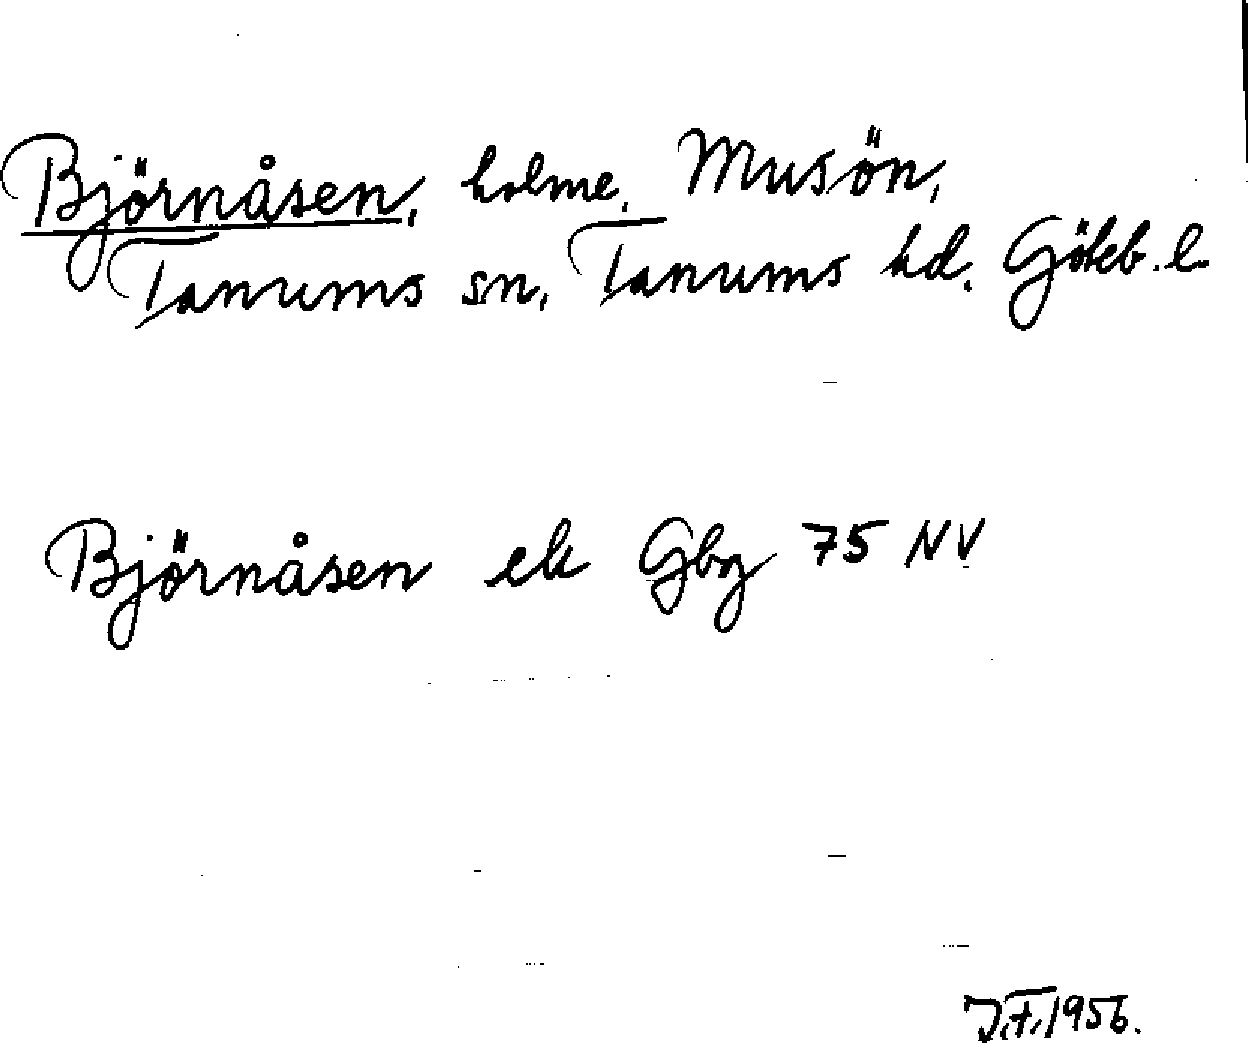 Björnåsen, holme, Musön,
Tanums sn, Tanums hd. Göteb. l.
Björnåsen ek Gbg 75 NV
J.F. 1956.